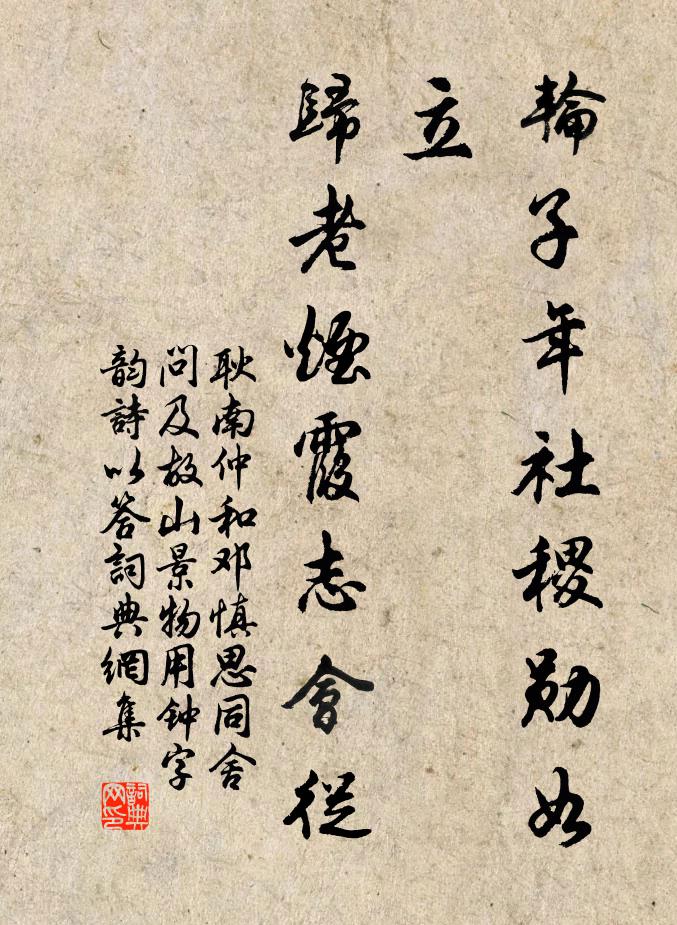 輪子年社稷勋如
立
歸老煙霞志會從
耿南仲和邓慎思同舍
問及故山景物用钟字
韵詩以答詞典網集
詞典网印